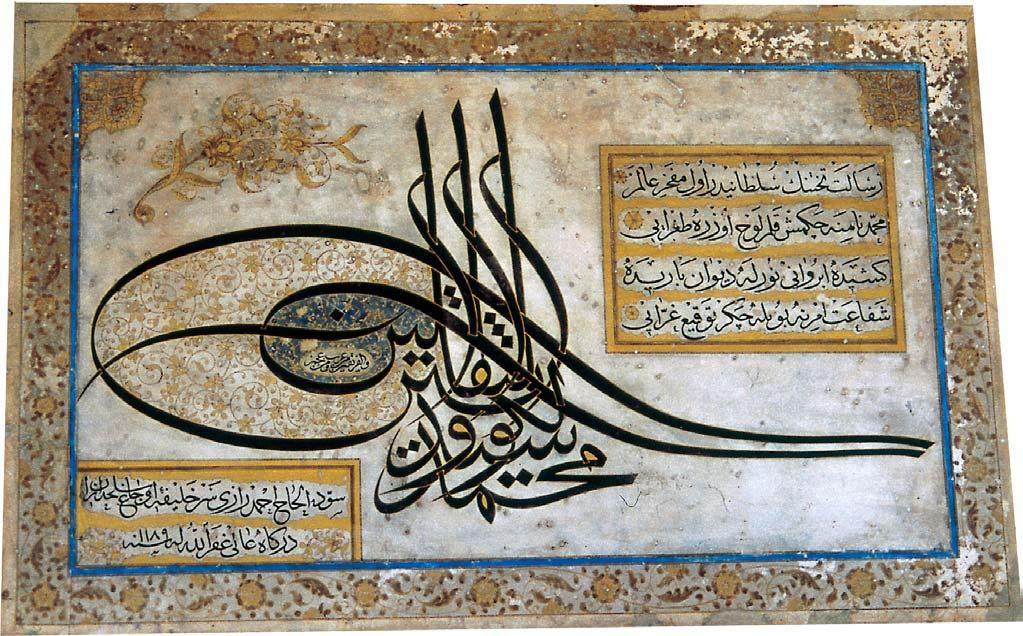 رسالت تختنك سلطانيدر اول مفخر عالم
محمد نامنه چكمش قلم لوح اوزره طغرايى
كشيدۀ ابروانى نورله ديوان باريده
شفاعت امرنه بويله چكر توقيع غرايى
محمد سيد الكونين والثقلين
والفريقين من عرب ومن عجم
سوده الحاج احمد رازى سر خليفۀ
دركاه عالى غفر الله له سنه ١١٨٩